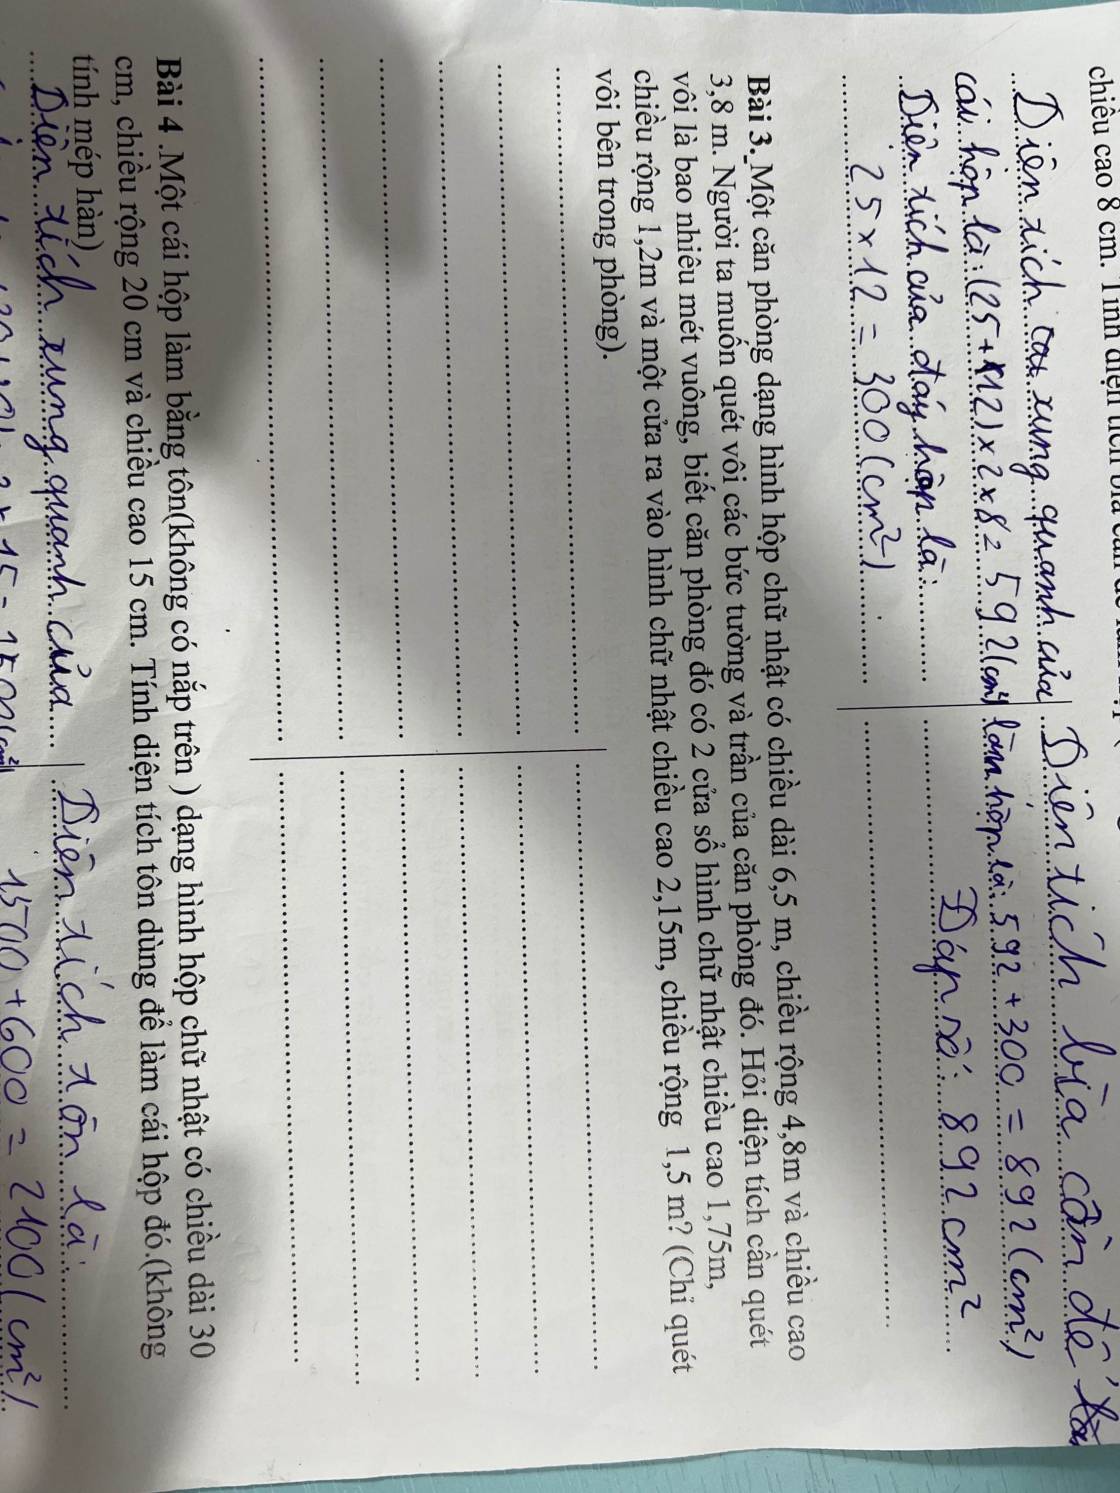 chiều cao 8 cm. Tính diện tích bìa
Diện tích xung quanh của
cái hộp là: (25 + 12) x 2 x 8 = 592 (cm²)
Diện tích của đáy hộp là:
25 x 12 = 300 (cm²)
Diện tích bìa cần để
làm hộp là: 592 + 300 = 892 (cm²)
Đáp số: 892 cm²
Bài 3. Một căn phòng dạng hình hộp chữ nhật có chiều dài 6,5 m, chiều rộng 4,8m và chiều cao
3,8 m. Người ta muốn quét vôi các bức tường và trần của căn phòng đó. Hỏi diện tích cần quét
vôi là bao nhiêu mét vuông, biết căn phòng đó có 2 cửa sổ hình chữ nhật chiều cao 1,75m,
chiều rộng 1,2m và một cửa ra vào hình chữ nhật chiều cao 2,15m, chiều rộng 1,5 m? (Chỉ quét
vôi bên trong phòng).
Bài 4 .Một cái hộp làm bằng tôn(không có nắp trên ) dạng hình hộp chữ nhật có chiều dài 30
cm, chiều rộng 20 cm và chiều cao 15 cm. Tính diện tích tôn dùng để làm cái hộp đó.(không
tính mép hàn)
Diện tích xung quanh của
x 15 = 1500 (cm²)
Diện tích tôn là:
1500 + 600 = 2100 (cm²)